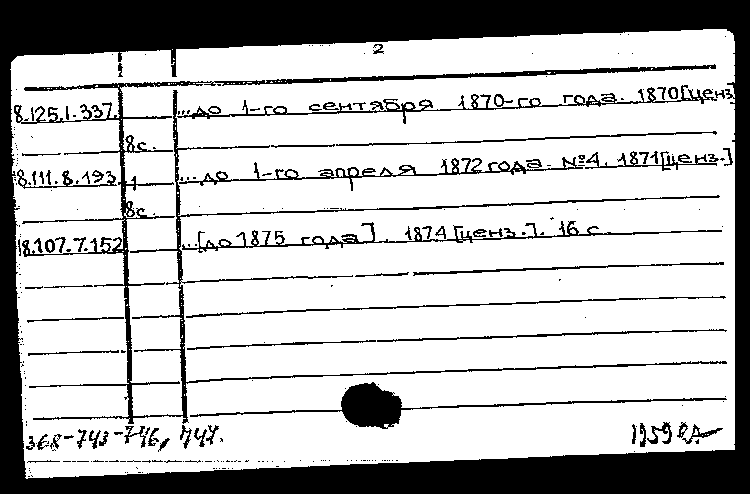 2
8.125.1.337. ...до 1-го сентября 1870-го года. 1870[ценз
8с.
18.111.8.193 1 ...до 1-го апреля 1872 года. №4. 1871[ценз.]
8с.
18.107.7.152 ...[до 1875 года]. 1874[ценз.]. 16 с.
368-743-746, 747.
1959